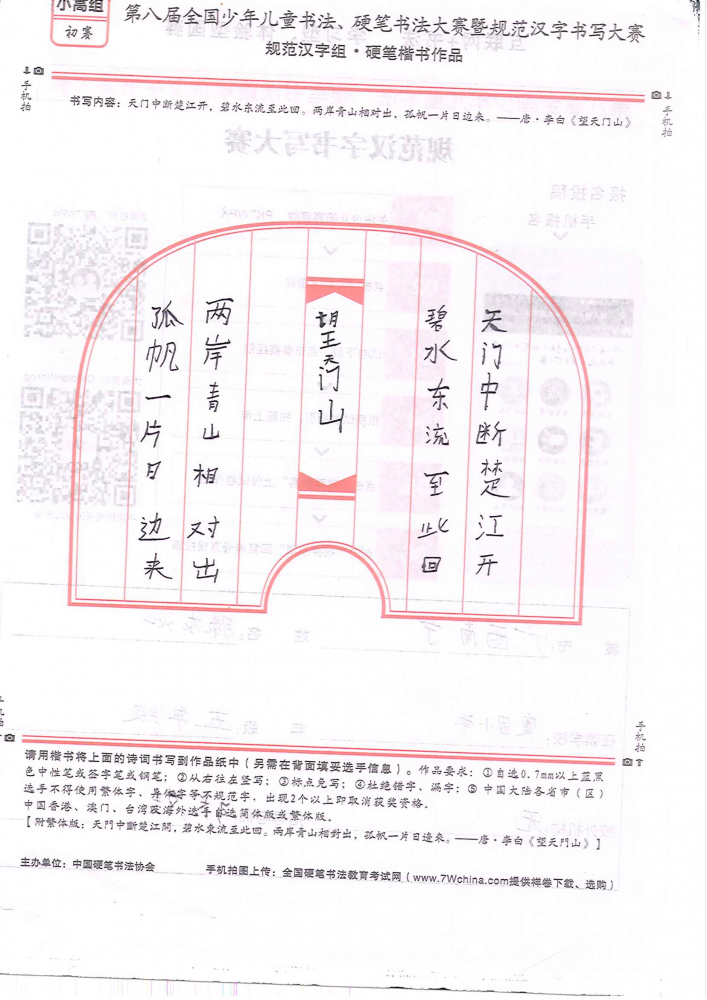 小高组
初赛
第八届全国少年儿童书法、硬笔书法大赛暨规范汉字书写大赛
规范汉字组·硬笔楷书作品
手机拍
手机拍
书写内容：天门中断楚江开，碧水东流至此回。两岸青山相对出，孤帆一片日边来。——唐·李白《望天门山》
天门中断楚江开
碧水东流至此回
望天门山
两岸青山相对出
孤帆一片日边来
手机拍
手机拍
请用楷书将上面的诗词书写到作品纸中（另需在背面填妥选手信息）。作品要求：①自选0.7mm以上蓝黑
色中性笔或签字笔或钢笔；②从右往左竖写；③标点免写；④杜绝错字、漏字；⑤中国大陆各省市（区）
选手不得使用繁体字、异体字等不规范字，出现2个以上即取消获奖资格。
中国香港、澳门、台湾及海外选手自选简体版或繁体版。
【附繁体版：天門中斷楚江開，碧水東流至此回。兩岸青山相對出，孤帆一片日邊來。——唐·李白《望天門山》】
主办单位：中国硬笔书法协会 手机拍图上传：全国硬笔书法教育考试网（www.7Wchina.com提供样卷下载、选购）